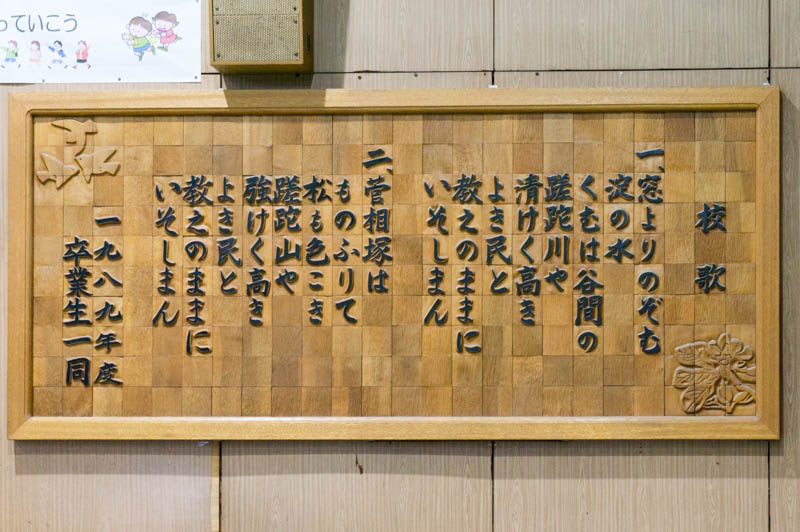 っていこう
校歌
一、窓よりのぞむ
淀の水
くむは谷間の
蹉跎川や
清けく高き
よき民と
教えのままに
いそしまん
二、菅相塚は
ものふりて
松も色こき
蹉跎山や
強けく高き
よき民と
教えのままに
いそしまん
一九八九年度
卒業生一同